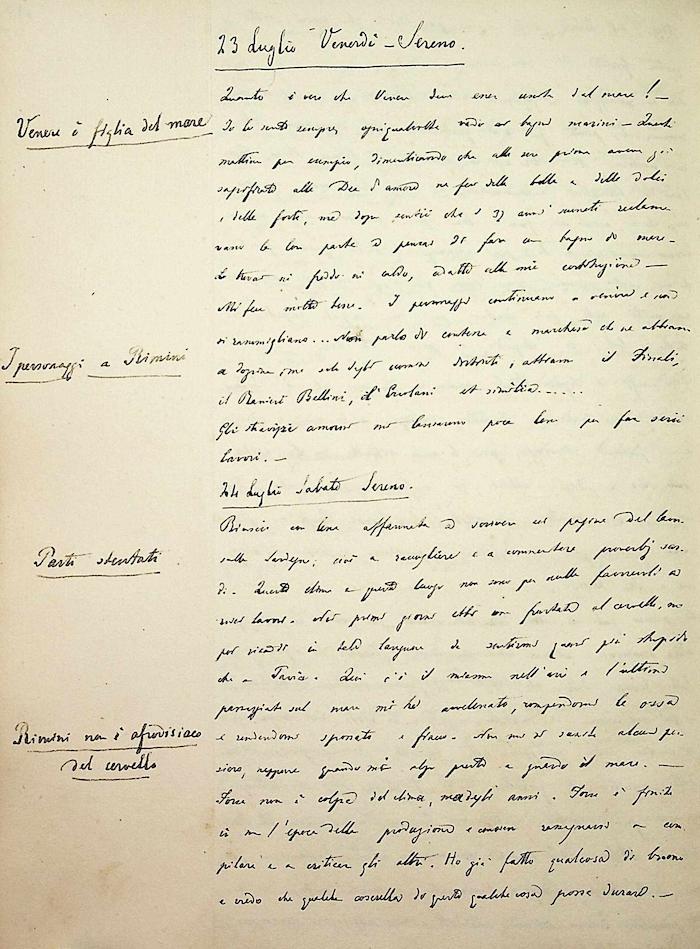 23 Luglio Venerdì - Sereno.
Venere è figlia del mare
Quanto è vero che Venere deve esser nata dal mare! -
Io lo sento sempre, ogniqualvolta vado ai bagni marini - Questa
mattina per esempio, dimenticando che alla sera prima avevo già
sagrificato alla Dea d'amore
e delle forti, mi che i 39 anni suonati reclama
vano la loro parte di fare un bagno di mare -
Lo trovai nè freddo nè caldo, adatto alla mia costituzione -
Mi fece molto bene. I personaggi continuano a venire e non
I personaggi a Rimini
si rassomigliano... Non parlo di contesse e marchese che ne abbiamo
a dozzine, ma uomini distinti, abbiamo il Finali,
il Ranieri Bellini, il Ercolani et similia......
Gli stravizi amorosi mi lasciarono poca lena per far serii
lavori. -
24 Luglio Sabato Sereno.
Riuscii con lena affannata a scrivere sei pagine del
Parti stentati
sulla Sardegna, cioè a raccogliere e a commentare proverbj sar-
di. Questo clima e questo luogo non sono per nulla favorevoli a
miei lavori. Nei primi giorni ebbi una frustata al cervello, ma
poi ricaddi in tale languore da sentirmi quasi più stupido
che a Pavia. Qui c'è il miasma nell'aria e l'ultima
passeggiata sul mare mi ha avvelenato, rompendomi le ossa
Rimini non è afrodisiaco
del cervello
e rendendomi spossato e fiacco. Non mi si sveglia alcun pen-
siero, neppure quando mi alzo presto e guardo il mare. -
Forse non è colpa del clima, ma degli anni. Forse è finita
in me l'epoca della produzione e conviene rassegnarsi a com
pilare e a criticar gli altri. Ho già fatto qualcosa di buono
e credo che qualche coserella di questo qualche cosa possa durare. -